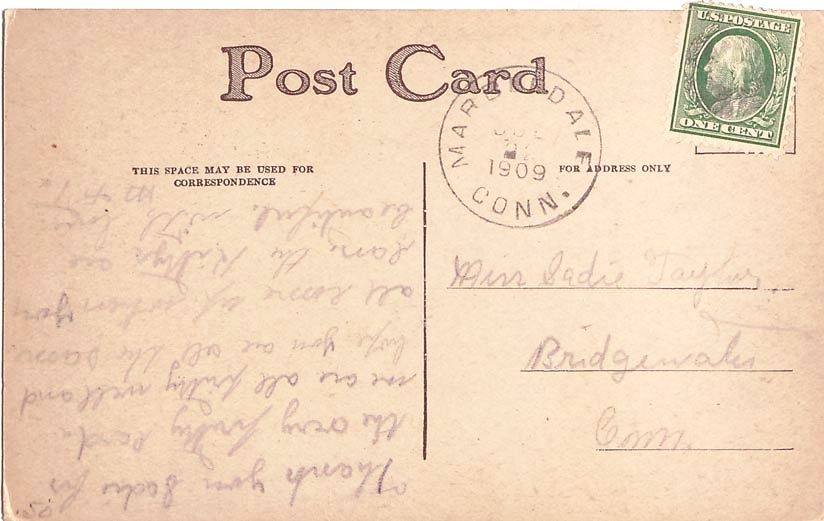 Post Card
THIS SPACE MAY BE USED FOR
CORRESPONDENCE
FOR ADDRESS ONLY
U.S. POSTAGE
ONE CENT
MARBLEDALE
1909
CONN.
Miss Sadie Taylor
Bridgewater
Conn.
Thank you Sadie for
the very pretty card.
we are all pretty well and
hope you are all the same.
all come up when you
can. the
are
beautiful. with love.